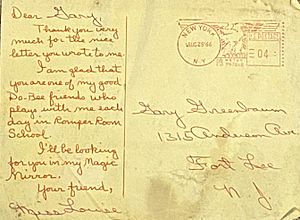 Dear Gary
Thank you very
much for the nice
letter you wrote to me.
I am glad that
you are one of my good
Do-Bee friends who
plays with me each
day in Romper Room
School.
I'll be looking
for you in my Magic
Mirror.
Your friend,
Miss Louise
NEW YORK
AUG 29 '66
N.Y.
04
Gary Greenbaum
1315 Anderson Ave
Fort Lee
N J